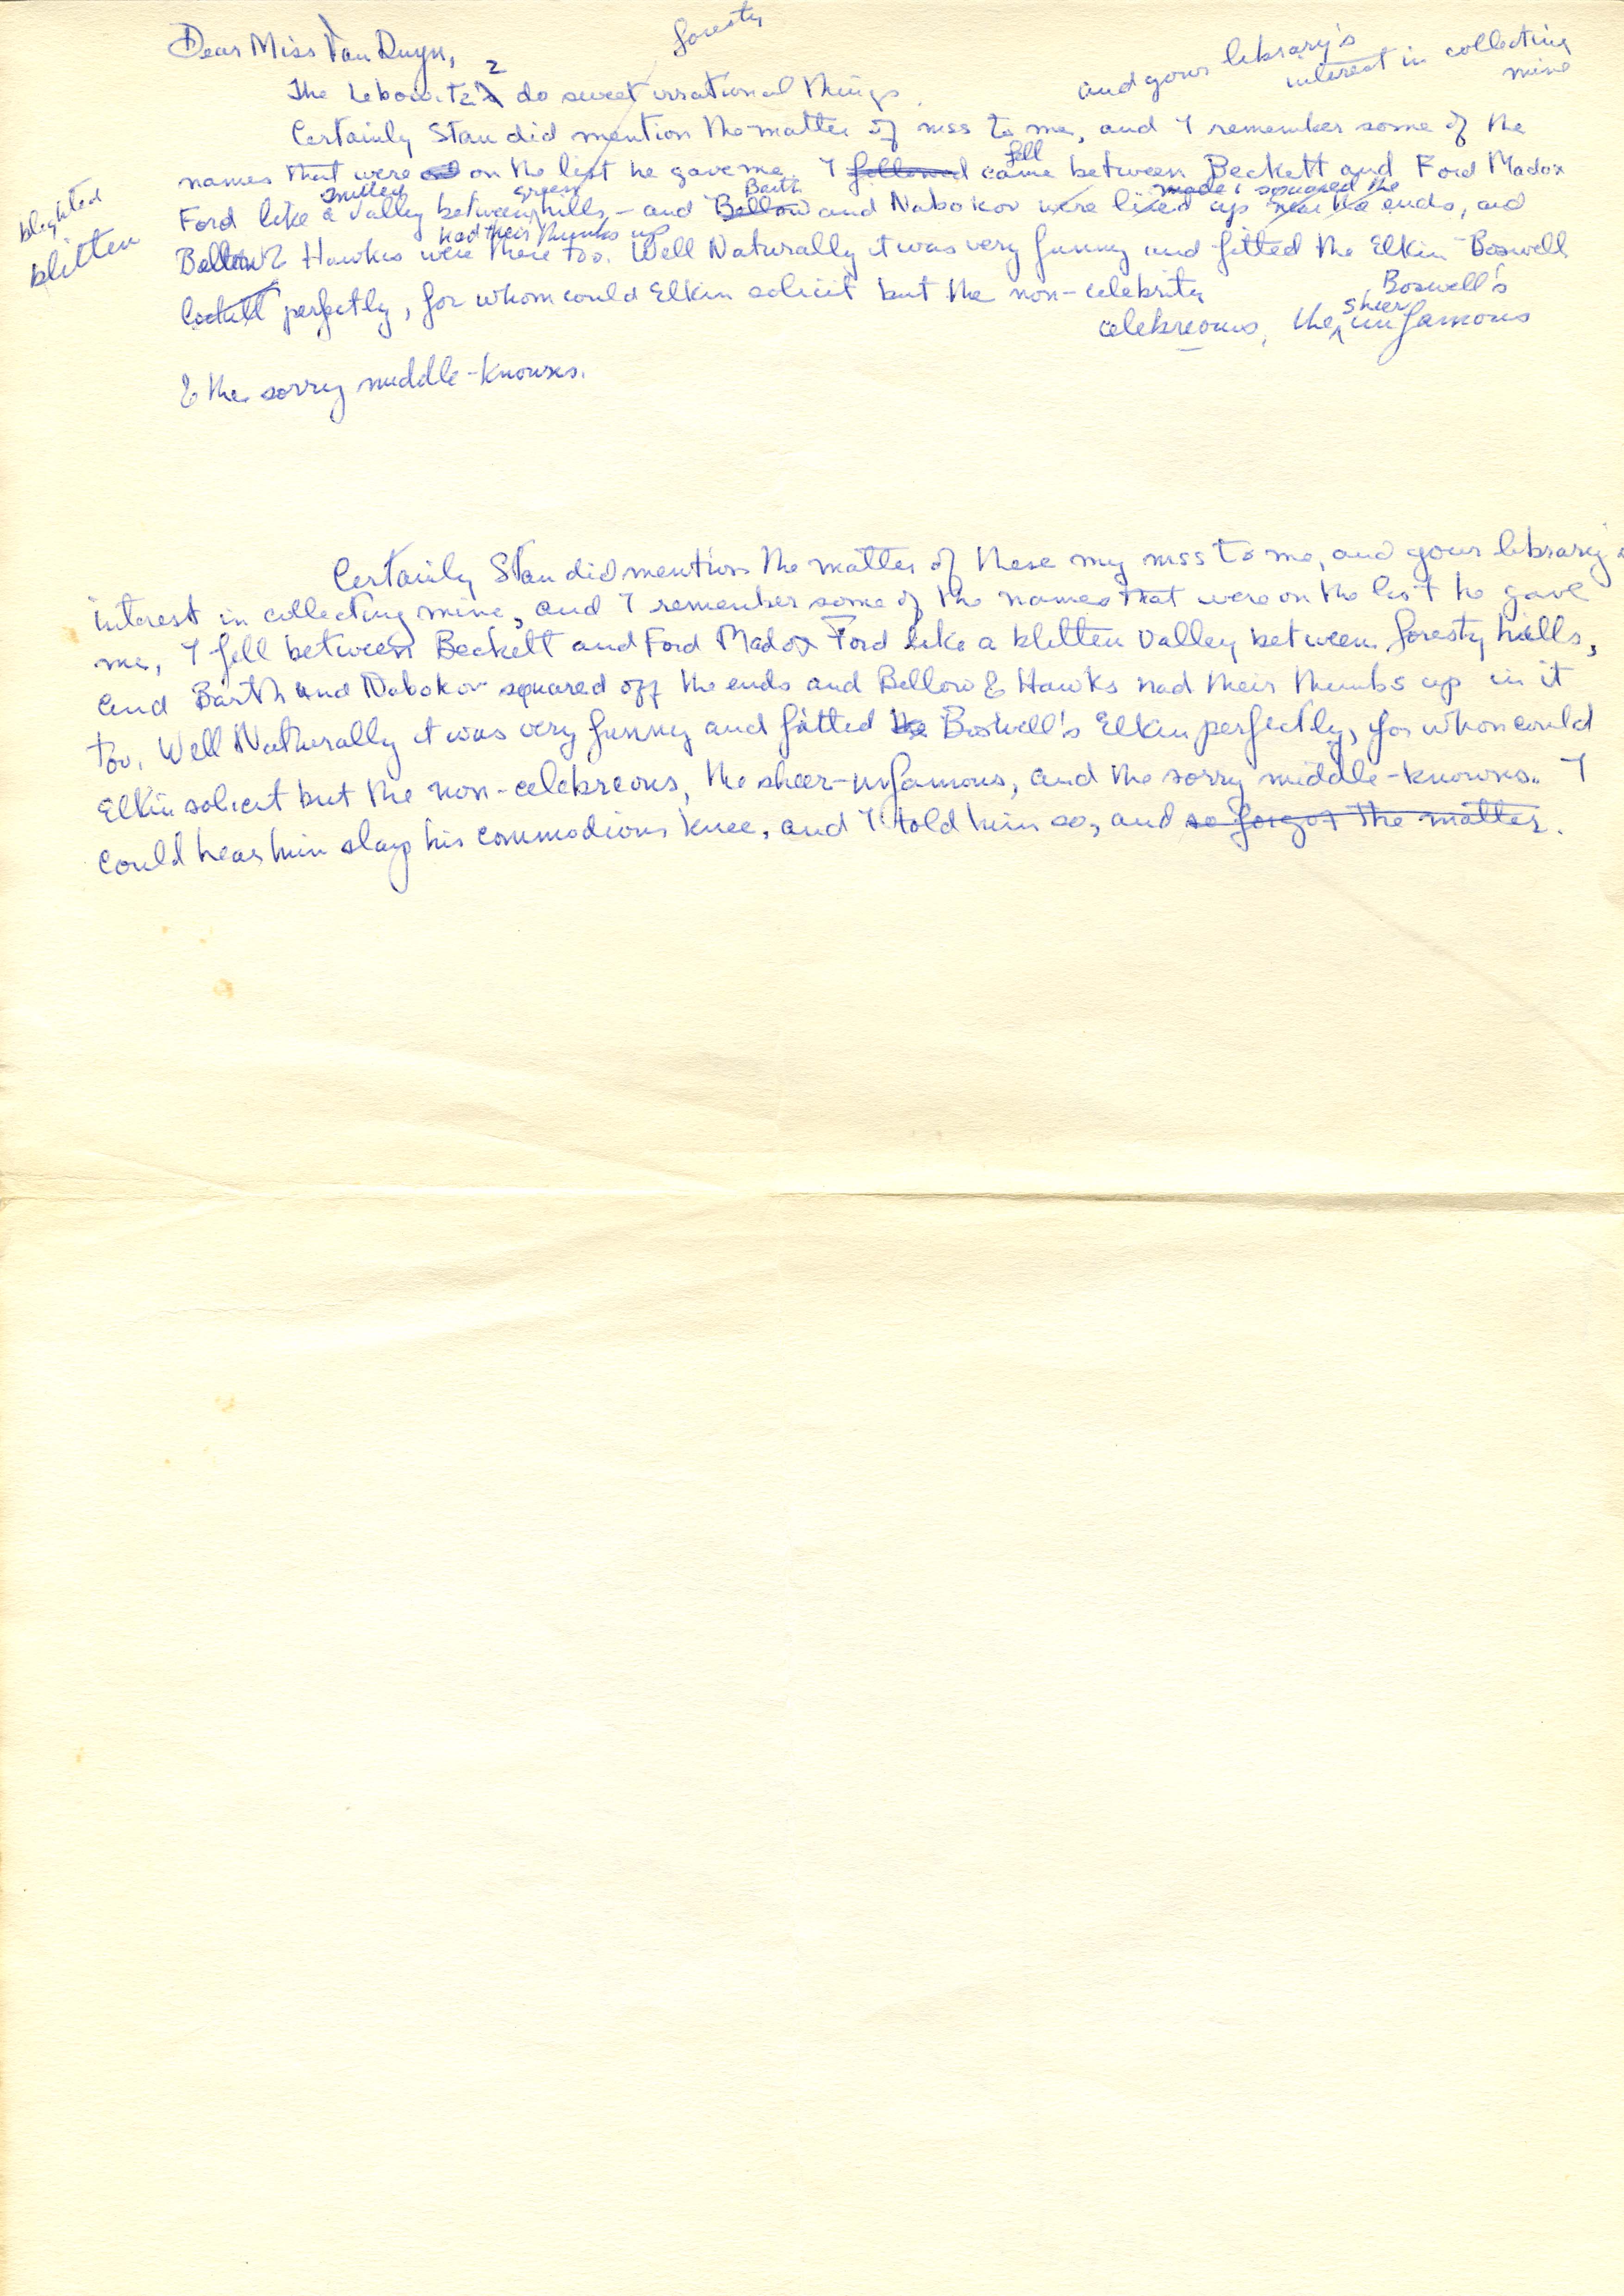 Dear Miss Van Duyn,
foresty
and your library's
interest in collecting
mine
The Lebowitz do sweet irrational things.
Certainly Stan did mention the matter of mss to me, and I remember some of the
names that were on the list he gave me. I followed came between Beckett and Ford Madox
fell
blighted
blitten
Ford like a valley between hills, – and Bellow and Nabokov were lined up near the ends, and
smitten green Barth made squared the
had their thumbs up
Bellow & Hawkes were there too. Well Naturally it was very funny and fitted the Elkin Boswell
perfectly, for whom could Elkin solicit but the non-celebrity
Boswell's
celebreous, the sheer unfamous
& the sorry middle-knowns.
Certainly Stan did mention the matter of these my mss to me, and your library's
interest in collecting mine, and I remember some of the names that were on the list he gave
me, I fell between Beckett and Ford Madox Ford like a blitten valley between foresty hills,
and Barth and Nabokov squared off the ends and Bellow & Hawks had their thumbs up in it
too. Well Naturally it was very funny and fitted the Boswell's Elkin perfectly, for whom could
Elkin solicit but the non-celebreous, the sheer-unfamous, and the sorry middle-knowns. I
could hear him slap his commodious knee, and I told him so, and so forgot the matter.